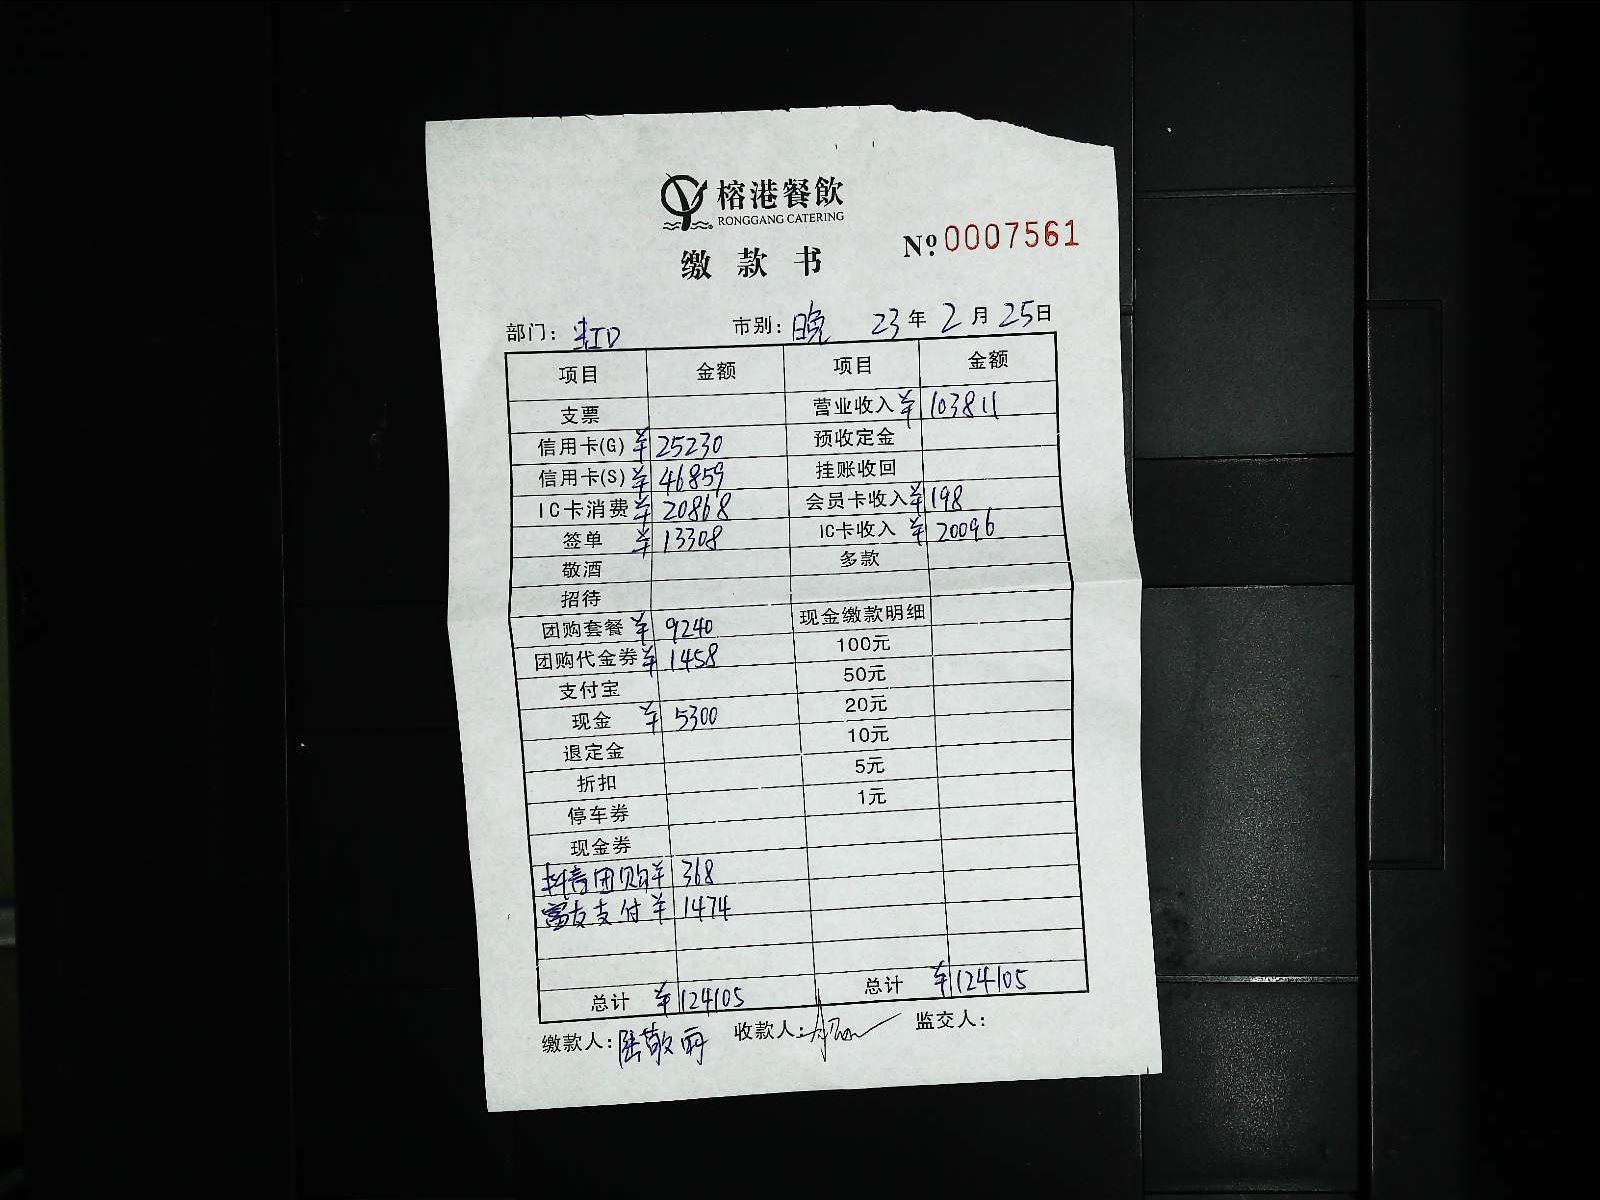 榕港餐飲
RONGGANG CATERING
缴款书
№ 0007561
部门: 虹口 市别: 晚 23年2月25日
项目 金额 项目 金额
支票 营业收入 ¥103811
信用卡(G) ¥25230 预收定金
信用卡(S) ¥46859 挂账收回
IC卡消费 ¥20868 会员卡收入 ¥198
签单 ¥13308 IC卡收入 ¥20096
敬酒 多款
招待
团购套餐 ¥9240 现金缴款明细
团购代金券 ¥1458 100元
支付宝 50元
现金 ¥5300 20元
退定金 10元
折扣 5元
停车券 1元
现金券
抖音团购 ¥368
富友支付 ¥1474
总计 ¥124105 总计 ¥124105
缴款人: 陆敬丽 收款人: 监交人: